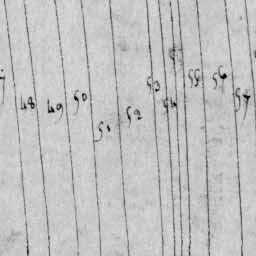 48 49 50 51 52 53 54 55 56 57